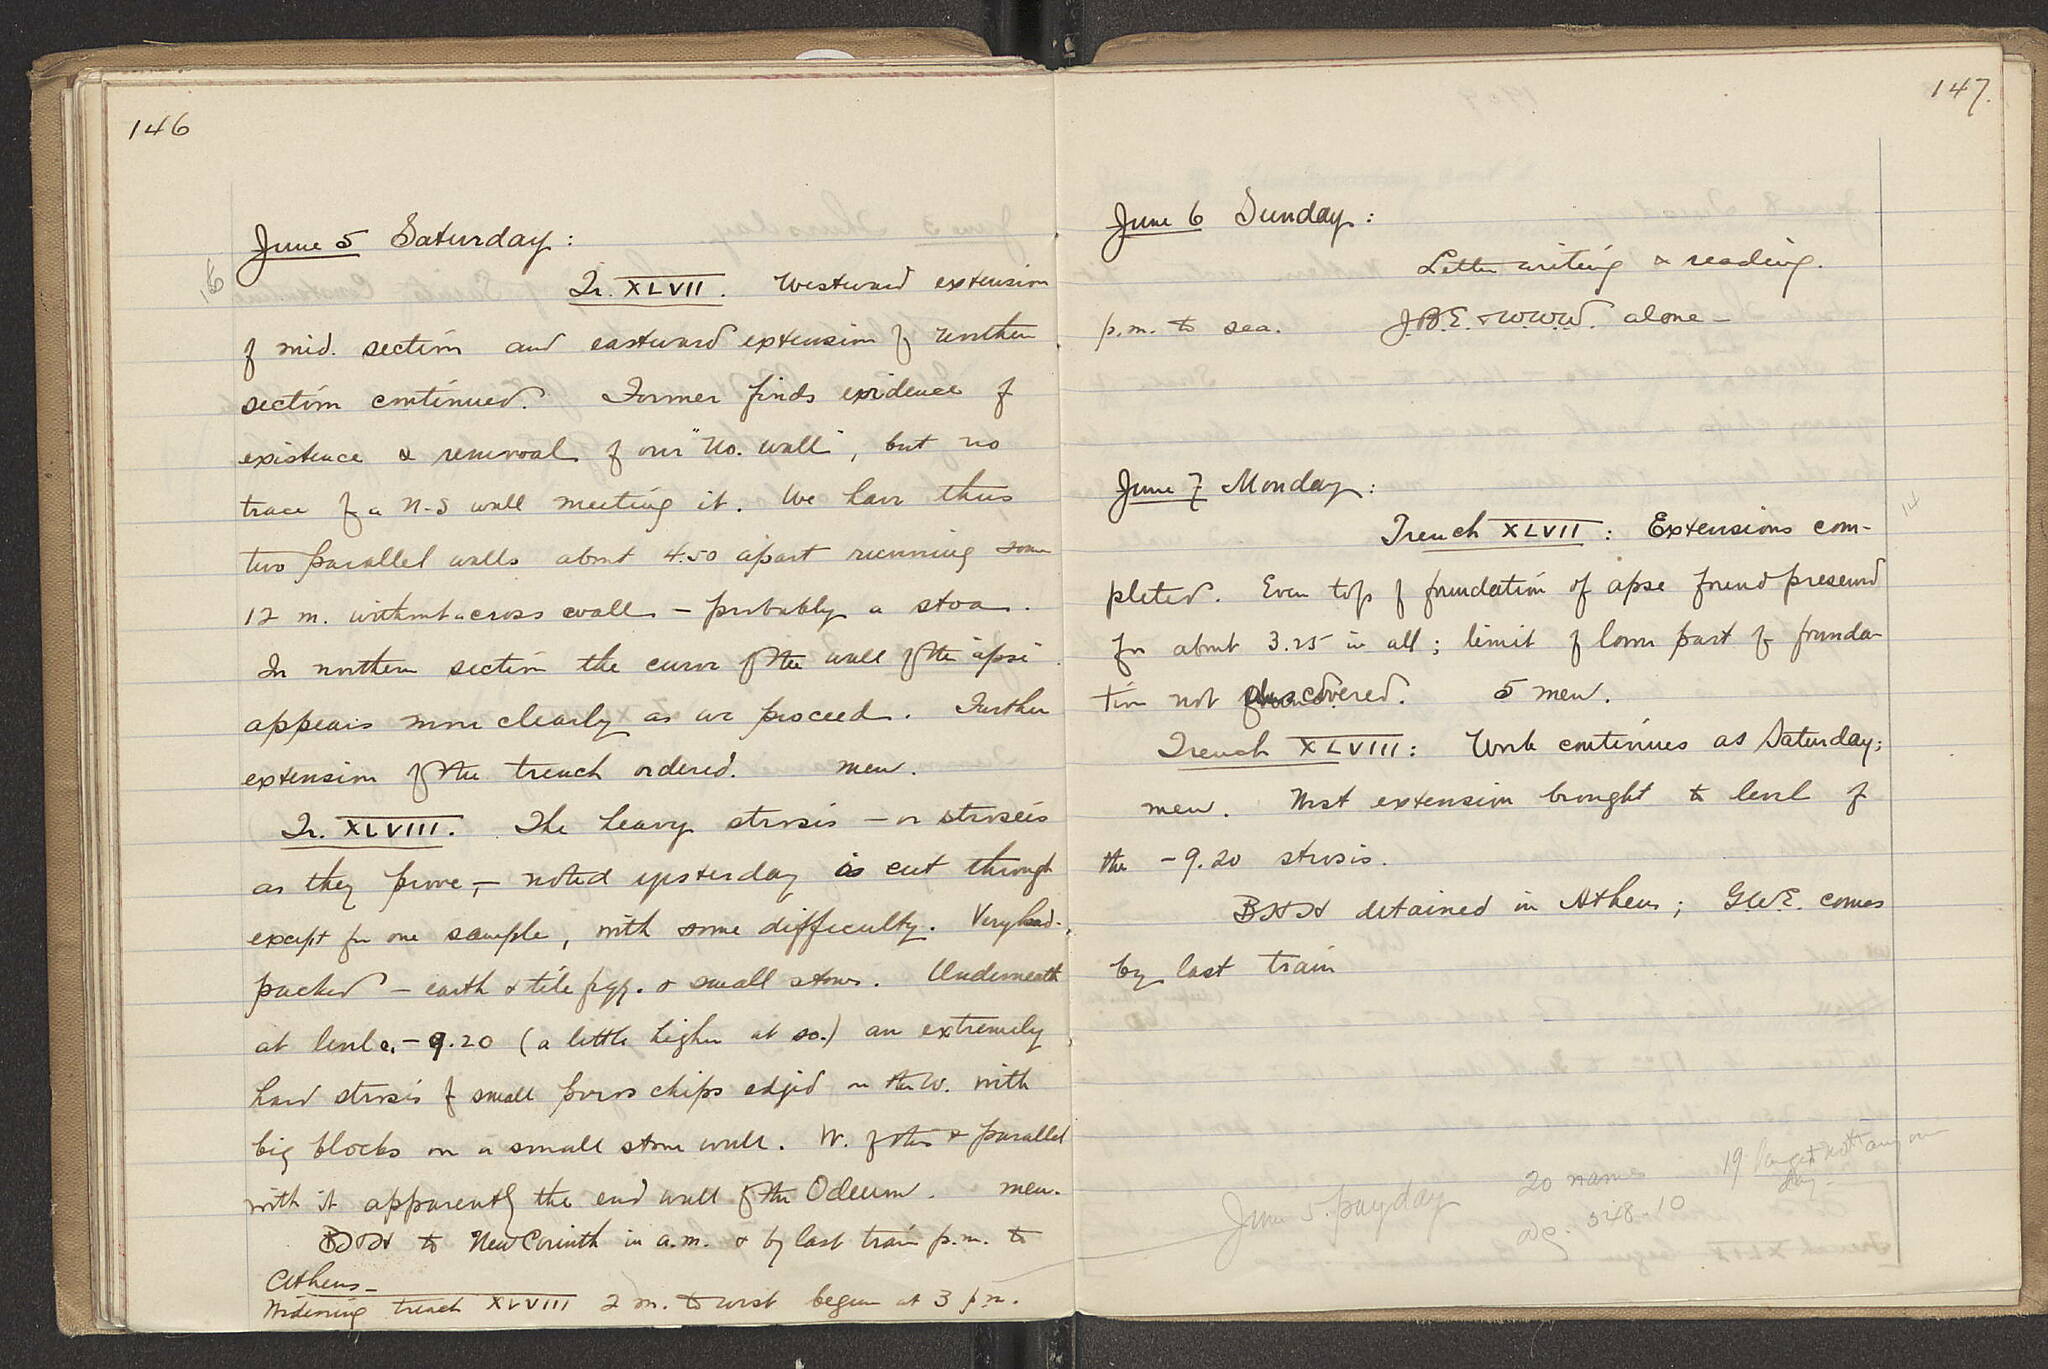 146
June 5 Saturday:
Tr. XLVII. Westward extension
of mid. section and eastward extension of northern
section continued. Former finds evidence of
existence & removal of our "No. wall", but no
trace of a N-S wall meeting it. We have thus
two parallel walls about 4.50 apart running some
12 m. without a cross wall - probably a stoa.
In northern section the curve of the wall of the apse
appears more clearly as we proceed. Further
extension of the trench ordered. men.
Tr. XLVIII. The heavy strosis - or stroseis
as they prove, - noted yesterday is cut through
except for one sample, with some difficulty. Very hard-
packed - earth & tile frgg. & small stones. Underneath
at level c. - 9.20 (a little higher at so.) an extremely
hard strosis of small poros chips edged on the W. with
big blocks on a small stone wall. W. of this & parallel
with it apparently the end wall of the Odeum. men.
BHH to New Corinth in a.m. & by last train p.m. to
Athens -
Widening trench XLVIII 2 m. to west begun at 3 p.m.
147.
June 6 Sunday:
Letter writing & reading.
p.m. to sea. J.B.E. & W.W.W. alone -
June 7 Monday:
Trench XLVII: Extensions com-
pleted. Even top of foundation of apse found preserved
for about 3.25 in all; limit of lower part of founda-
tion not discovered. 5 men.
Trench XLVIII: Work continues as Saturday;
men. West extension brought to level of
the - 9.20 strosis.
BHH detained in Athens; G.W.E. comes
by last train
June 5. payday
20 names
548.10
19